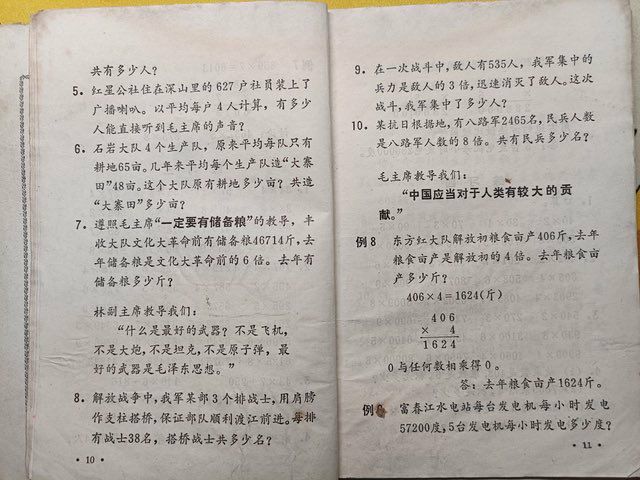 共有多少人？
5．红星公社住在深山里的 627 户社员装上了
广播喇叭。以平均每户 4 人计算，有多少
人能直接听到毛主席的声音？
6．石岩大队 4 个生产队，原来平均每队只有
耕地65亩。几年来平均每个生产队造“大寨
田”48亩。这个大队原有耕地多少亩？共造
“大寨田”多少亩？
7．遵照毛主席“一定要有储备粮”的教导，丰
收大队文化大革命前有储备粮46714斤，去
年储备粮是文化大革命前的 6 倍。去年有
储备粮多少斤？
林副主席教导我们：
“什么是最好的武器？不是飞机，
不是大炮，不是坦克，不是原子弹，最
好的武器是毛泽东思想。”
8．解放战争中，我军某部 3 个排战士，用肩膀
作支柱搭桥，保证部队顺利渡江前进。每排
有战士38名，搭桥战士共多少名？
• 10 •
9．在一次战斗中，敌人有535人，我军集中的
兵力是敌人的 3 倍，迅速消灭了敌人。这次
战斗，我军集中了多少人？
10．某抗日根据地，有八路军2465名，民兵人数
是八路军人数的 8 倍。共有民兵多少名？
毛主席教导我们：
“中国应当对于人类有较大的贡
献。”
例 8 东方红大队解放初粮食亩产406斤，去年
粮食亩产是解放初的 4 倍。去年粮食亩
产多少斤？
406×4＝1624(斤)
406
× 4
1624
0 与任何数相乘得 0。
答：去年粮食亩产1624斤。
例 富春江水电站每台发电机每小时发电
57200度，5台发电机每小时发电多少度？
• 11 •